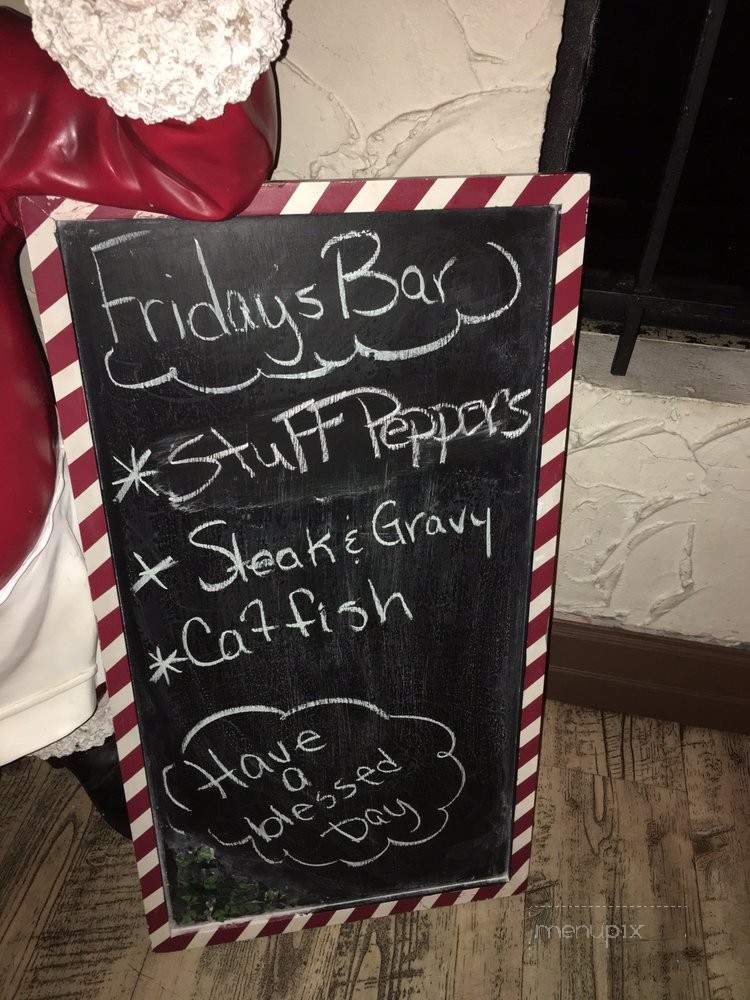 Friday's Bar
* Stuff Peppers
* Steak & Gravy
* Catfish
Have
a
blessed
Day
menupix